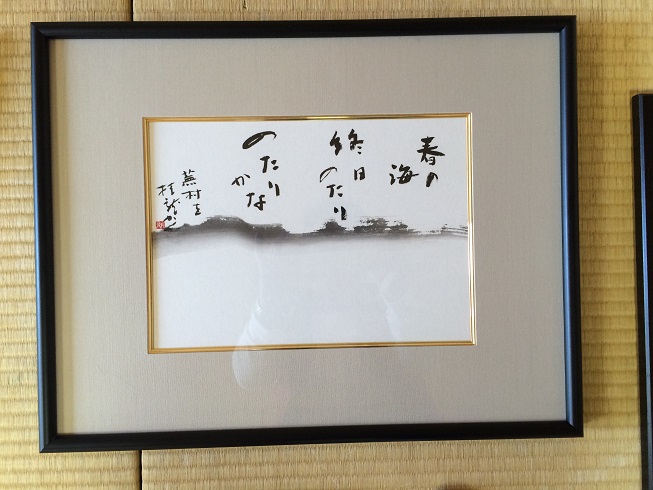 春の
海
終日
のたり
のたり
かな
蕪村